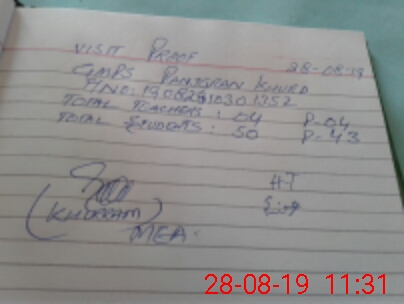 VISIT PROOF
28-08-19
GMPS PANJGRAN KHURD
TOTAL TEACHERS : 04 P-04
TOTAL STUDENTS : 50 P-43
HT
(KHURRAM)
MEA.
28-08-19 11:31